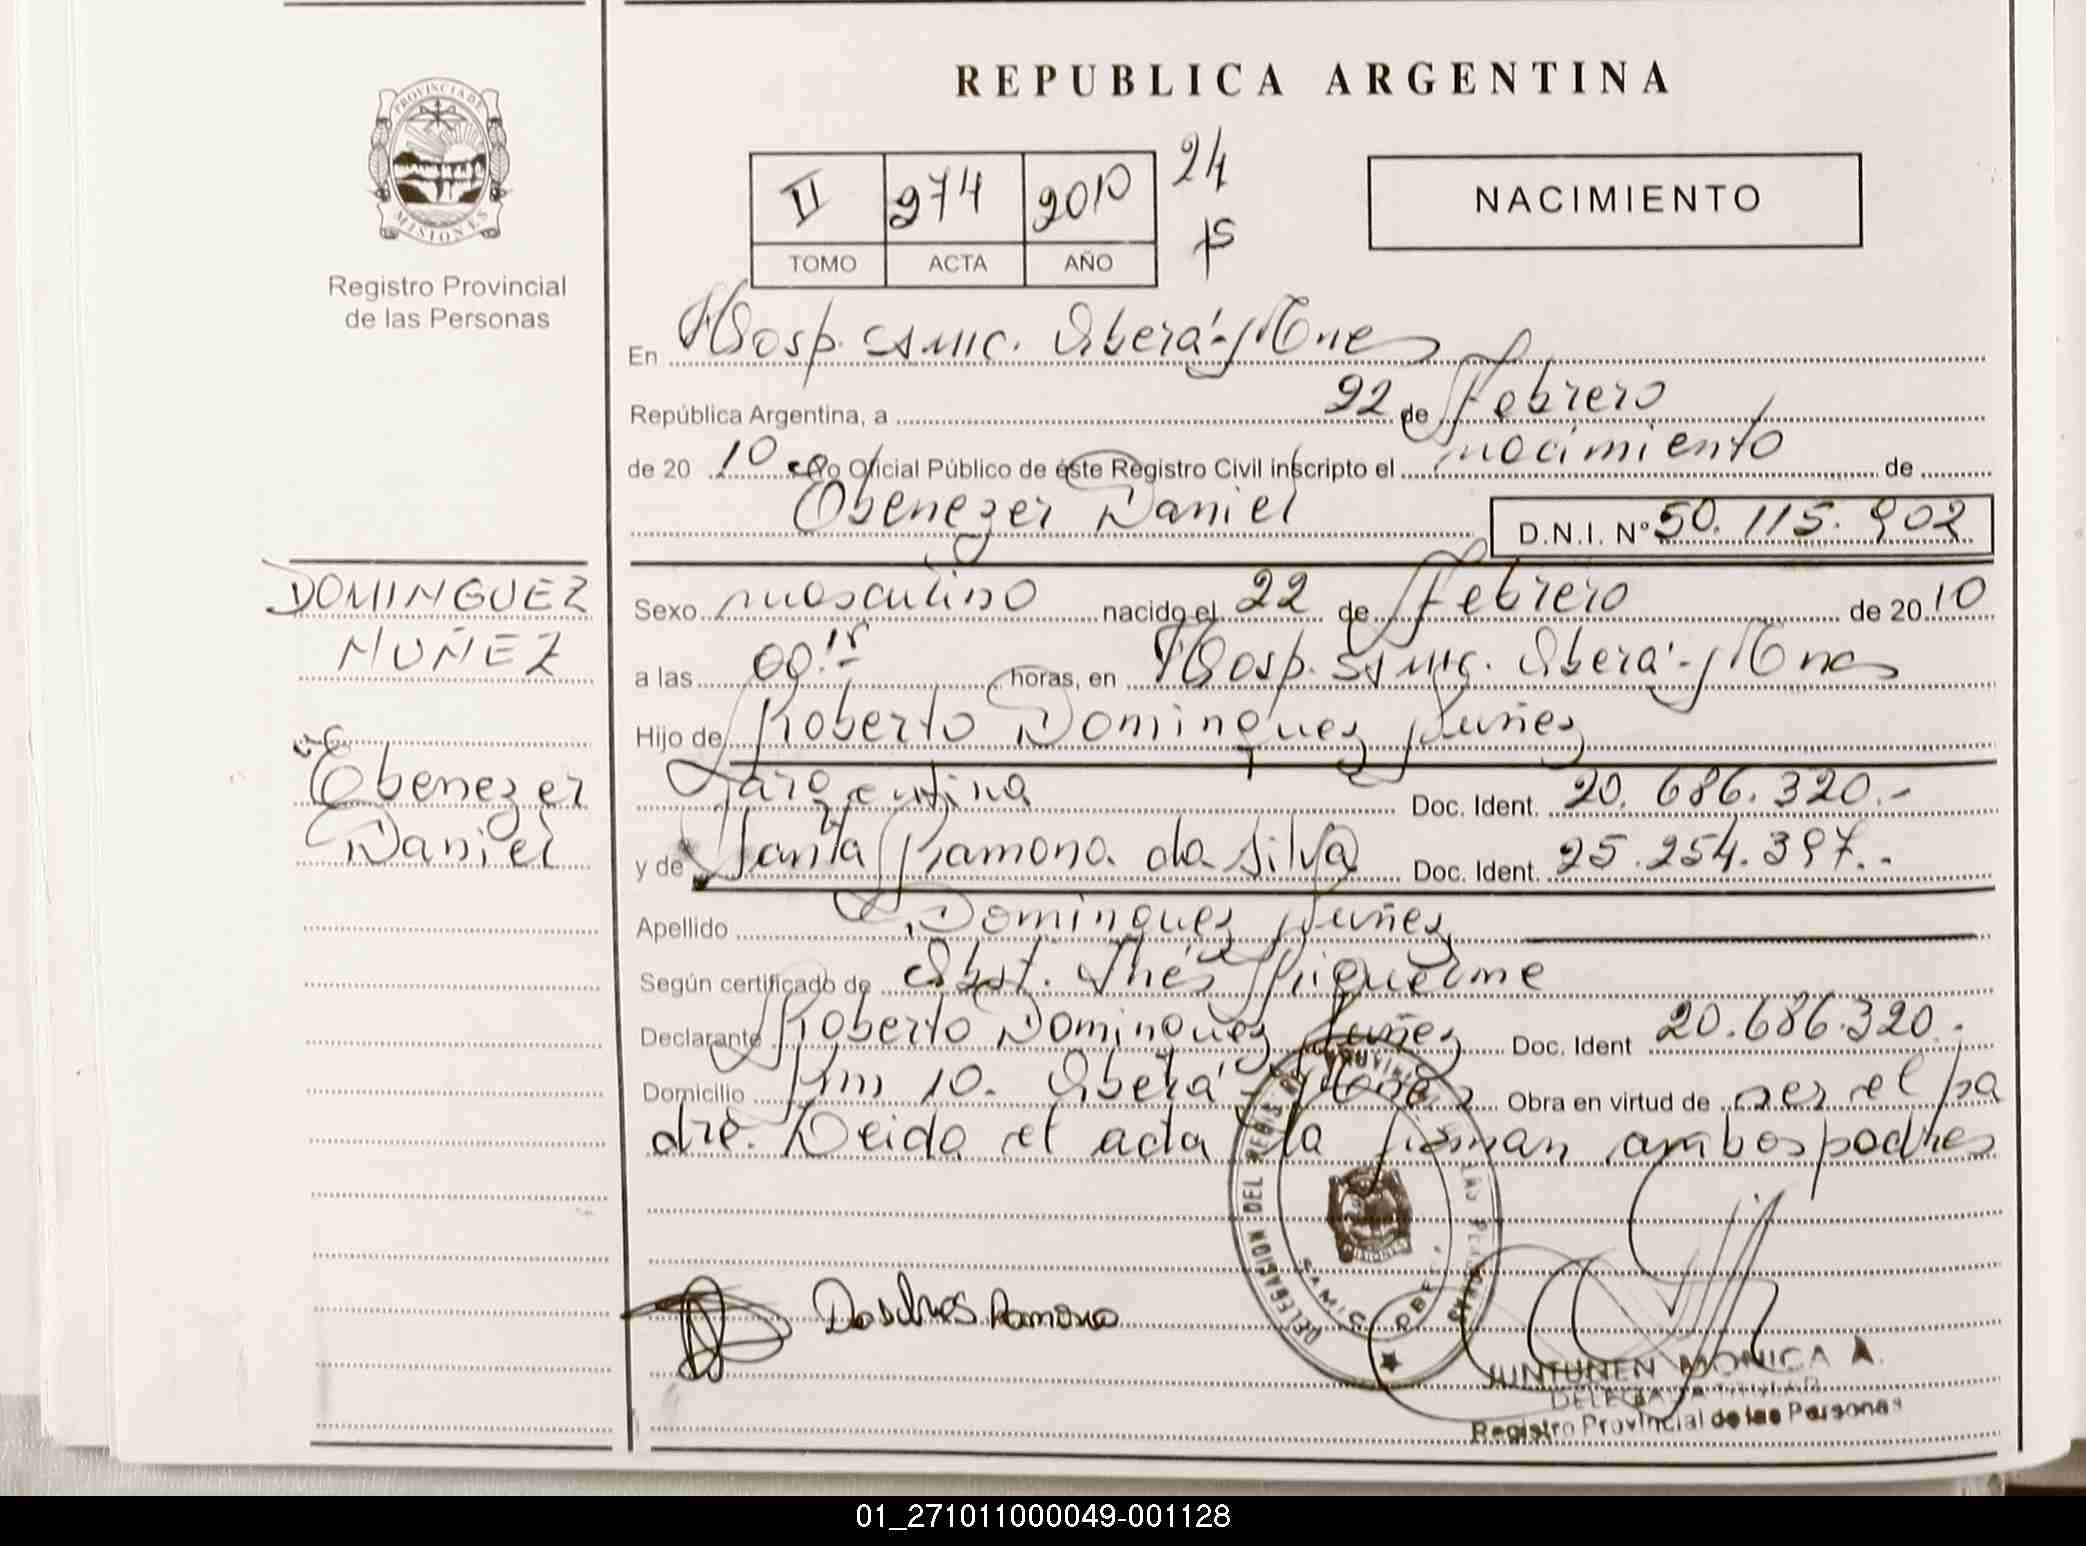 REPUBLICA ARGENTINA
PROVINCIA DE
MISIONES
Registro Provincial
de las Personas
II 274 2010 24
TOMO ACTA AÑO
NACIMIENTO
En Hosp. SAMIC. Oberá - Mnes
República Argentina, a 22 de Febrero
de 20 10 Yo Oficial Público de éste Registro Civil inscripto el nacimiento de
Ebenezer Daniel D.N.I. Nº 50.115.902
DOMINGUEZ
NUÑEZ
Ebenezer
Daniel
Sexo masculino nacido el 22 de Febrero de 20 10
a las 00.15 horas, en Hosp. SAMIC. Oberá - Mnes
Hijo de Roberto Dominguez Nuñez
argentina Doc. Ident. 20.686.320.-
y de Ramona da Silva Doc. Ident. 25.254.397.-
Apellido Dominguez Nuñez
Según certificado de Obst. Inés Riquelme
Declarante Roberto Dominguez Nuñez Doc. Ident 20.686.320.-
Domicilio Km 10. Oberá - Mnes Obra en virtud de ser el pa
dre. Leida el acta la firman ambos padres
DELEGACION DEL
SAMIC OBERA
Ramona
JUNTUNEN MONICA A.
DELEGADA TITULAR
Registro Provincial de las Personas
01_271011000049-001128